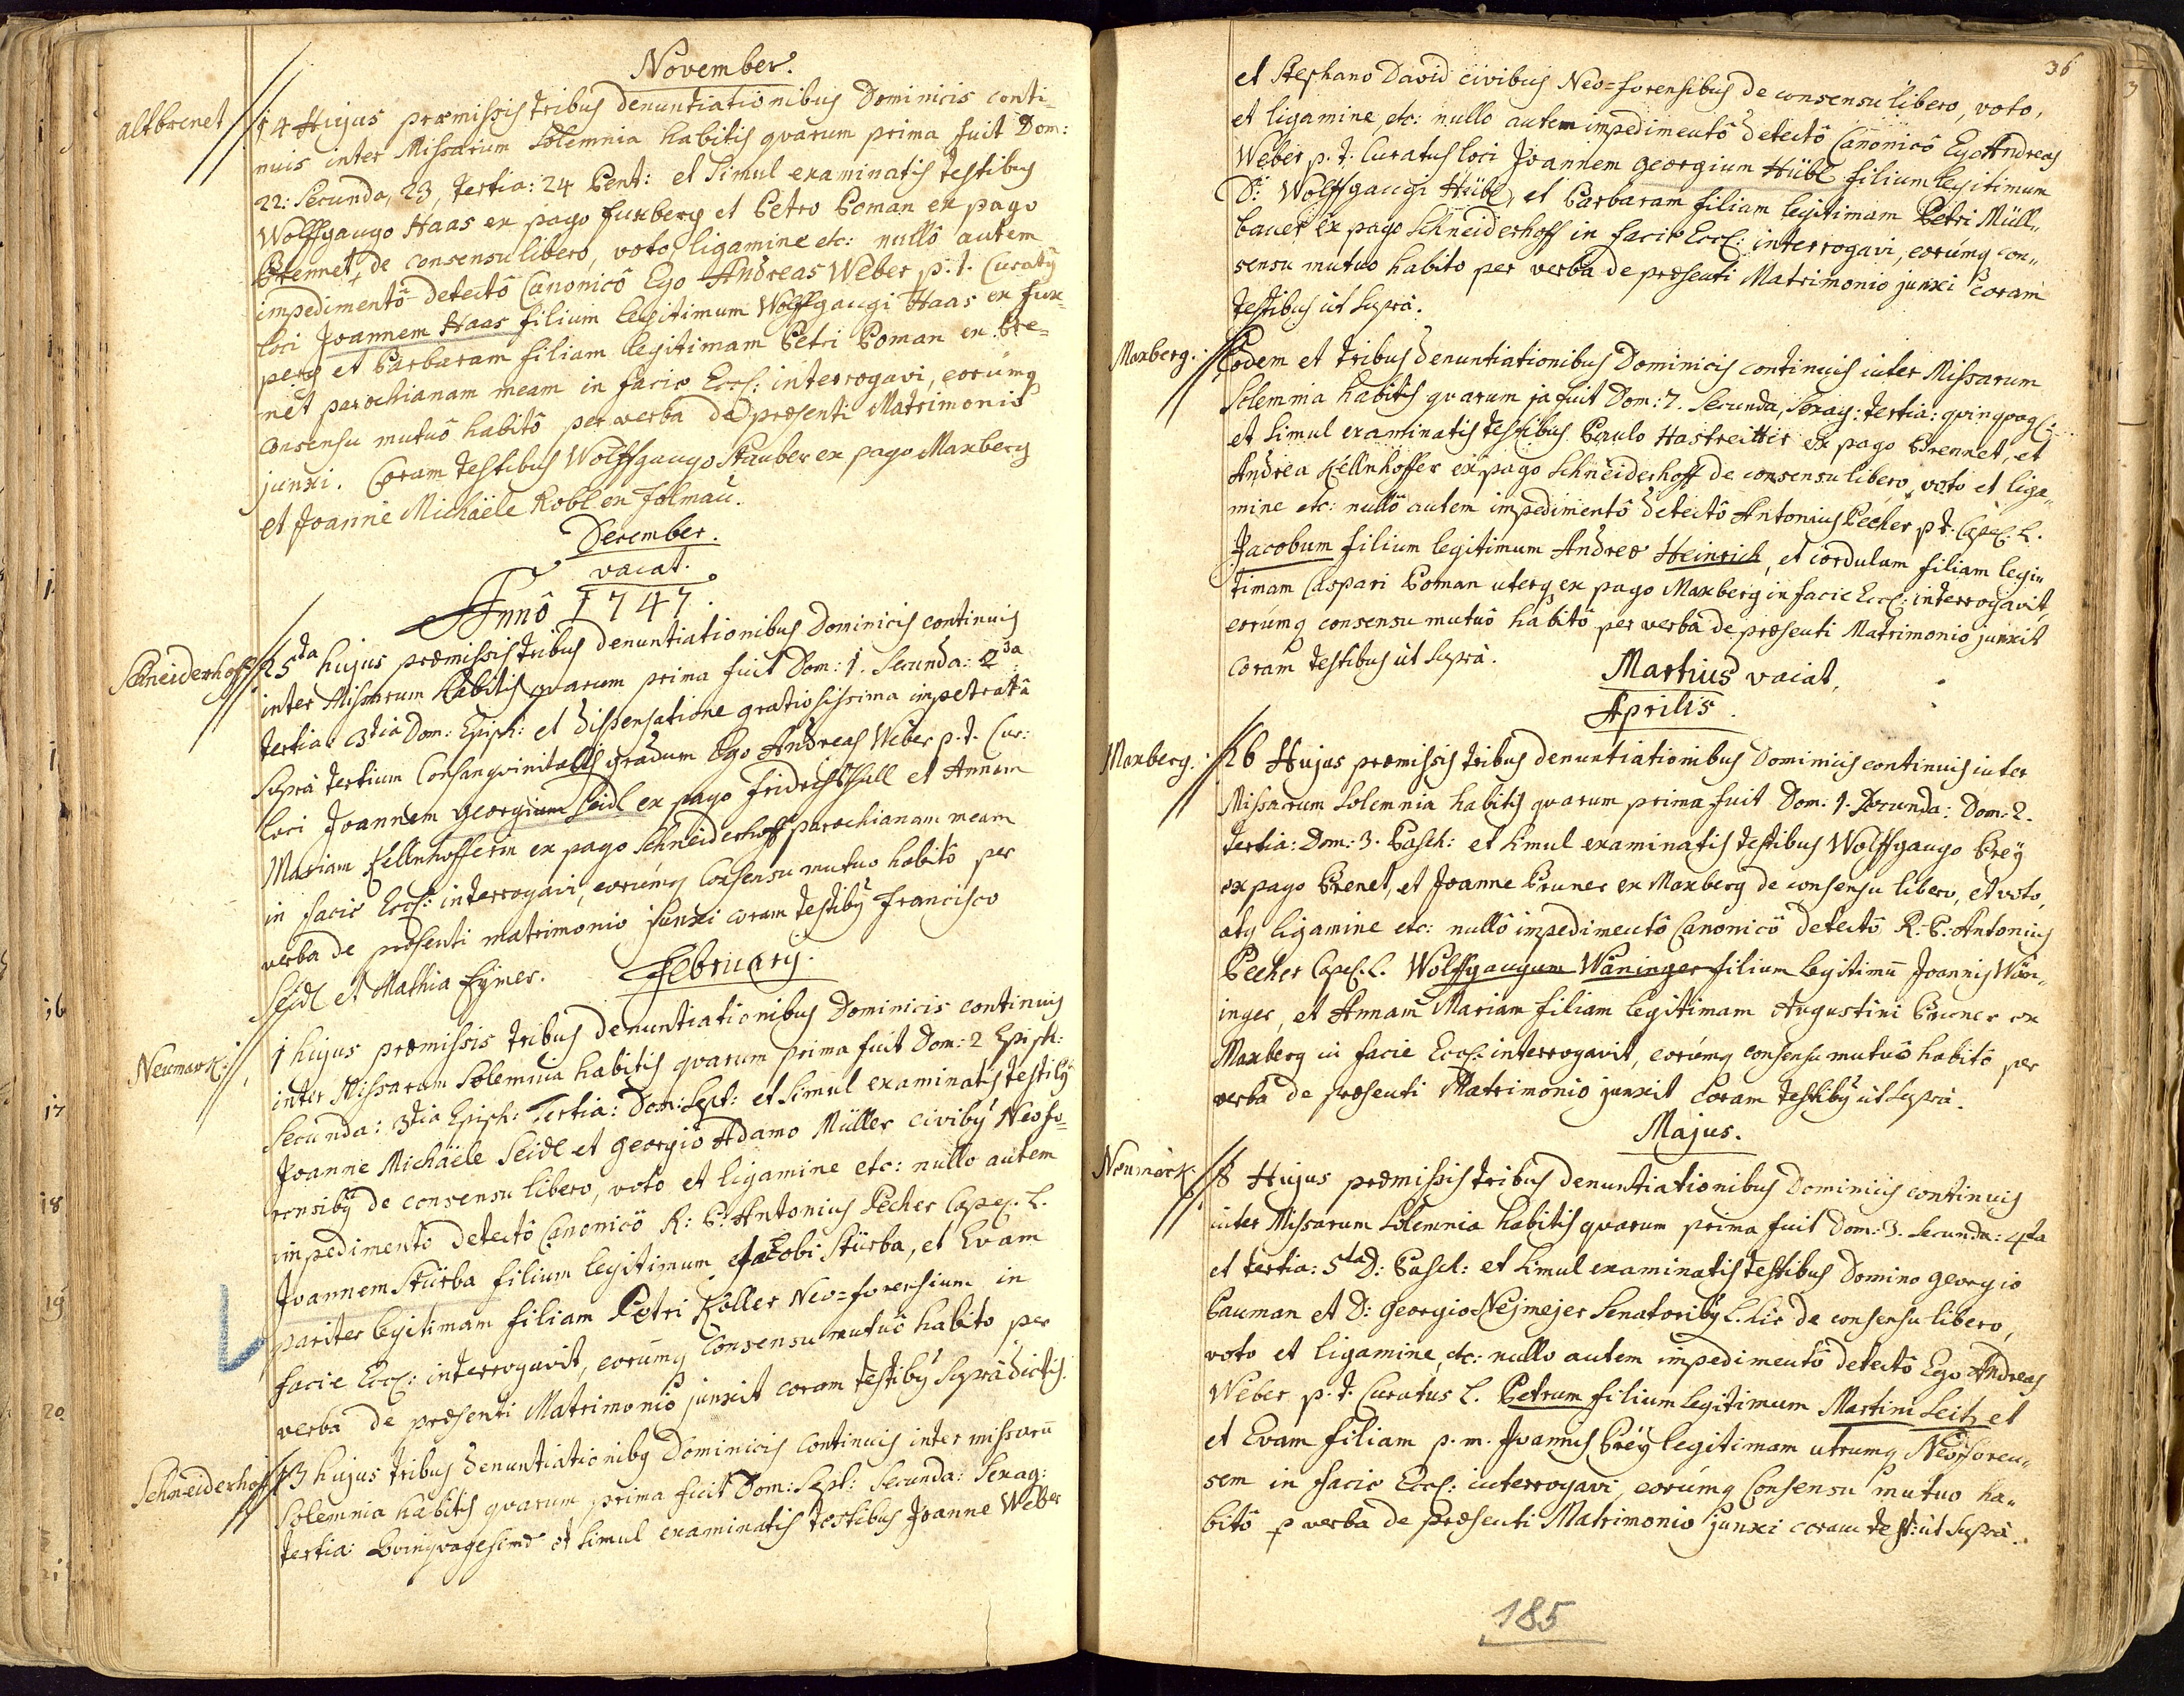 November.
altbrenet
14 Hujus præmissis tribus denuntiationibus Dominicis conti=
nuis inter Missarum Solemnia habitis quarum prima fuit Dom:
22: Secunda, 23, tertia: 24 Pent: et Simul examinatis testibus
Wolffgango Haas ex pago fuxberg et Petro Poman ex pago
Brennet, de consensu libero, voto, ligamine etc: nullô autem
impedimentô detectô Canonicô Ego Andreas Weber p. t. Curatus
loci Joannem Haas filium legitimum Wolffgangi Haas ex fux=
perg et Barbaram filiam legitimam Petri Poman ex Bre=
net parochianam meam in facie Eccl: interrogavi, eorumq
consensu mutuô habitô per verba de præsenti Matrimonio
junxi. Coram testibus Wolffgango Stauber ex pago Maxberg
et Joanne Michäele Robl ex folmau.
December.
vacat.
Annô 1747.
Schneiderhoff
25ta hujus præmissis tribus denuntiationibus Dominicis continuis
inter Missarum habitis quarum prima fuit Dom: 1. Secunda: 2da
tertia: 3tia Dom: Epiph: et dispensatione gratiosissima impetratâ
supra tertium Consanqvinitatis gradum Ego Andreas Weber p. t. Cur:
loci Joannem georgium Seidl ex pago fridrichsthall et Annam
Mariam Kellnhofferin ex pago Schneiderhoff parochianam meam
in facie Eccl: interrogavi, eorumq consensu mutuo habitô per
verba de præsenti matrimonio junxi coram testibus francisco
Seidl et Mathia Eymer.
February.
Neumark:
1 hujus præmissis tribus denuntiationibus Dominicis continuis
inter Missarum Solemnia habitis quarum prima fuit Dom: 2 Epiph:
Secunda: 3tia Epiph: Tertia: Dom: Sept: et Simul examinatis testibus
Joanne Michäele Seidl et georgio Adamo Müller civibus Neofo=
rensibus de consensu libero, voto et ligamine etc: nullo autem
impedimento detectô Canonicô R: P: Antonius Pecher Capel. L.
Joannem Stürba filium legitimum Jacobi Stürba, et Evam
pariter legitimam filiam Petri Koller Neo=forensium in
facie Eccl: interrogavit, eorumq Consensu mutuô habito per
verba de præsenti Matrimoniô junxit coram testibus supradictis.
Schneiderhoff
13 hujus tribus denuntiationibus Dominicis continuis inter missarum
Solemnia habitis quarum prima fuit Dom: Sept: Secunda: Sexag:
tertia: Qvinqvagesima et Simul examinatis testibus Joanne Weber
36
et Stephano David civibus Neo=forensibus de consensu libero, voto,
et ligamine etc: nullo autem impedimentô detectô Canonicô Ego Andreas
Weber p. t. Curatus loci Joannem georgium Hübl filium legitimum
D: Wolffgangi Hübl, et Barbaram filiam legitimam Petri Müll„
bauer ex pago Schneiderhoff in facie Eccl: interrogavi, eorumq con„
sensu mutuo habito per verba de præsenti Matrimonio junxi coram
testibus ut Supra.
Maxberg.
Eodem et tribus denuntiationibus Dominicis continuis inter Missarum
Solemnia habitis quarum 1a fuit Dom: 7. Secunda, Sexag: tertia: qvinqvag:
et Simul examinatis testibus Paulo Hastreitter ex pago Brennet, et
Andrea Kellnhoffer ex pago Schneiderhoff de consensu libero, voto et liga„
mine etc: nullô autem impedimentô detectô Antonius Pecher p t. Capel. L.
Jacobum filium legitimum Andreæ Heinrich, et Cordulam filiam legi„
timam Caspari Poman uterq ex pago Maxberg in facie Eccl: interrogavit,
eorumq consensu mutuô habitô per verba de præsenti Matrimonio junxit
coram testibus ut Supra.
Martius vacat.
Aprilis.
Maxberg.
26 Hujus præmissis tribus denuntiationibus Dominicis continuis inter
Missarum Solemnia habitis quarum prima fuit Dom: 1. Secunda: Dom: 2.
tertia: Dom: 3. Pasch: et Simul examinatis testibus Wolffgango Preÿ
ex pago Brenet, et Joanne Pruner ex Maxberg de consensu libero, et voto,
atq ligamine etc: nullô impedimentô Canonicô detectô R: P: Antonius
Pecher Capel. L. Wolffgangum Wäninger filium legitimū Joannis Wän„
inger, et Annam Mariam filiam legitimam Augustini Pruner ex
Maxberg in facie Eccl: interrogavit, eorumq consensu mutuô habitô per
verba de præsenti Matrimonio junxit coram testibus ut Supra.
Majus.
Neumark
8 Hujus præmissis tribus denuntiationibus Dominicis continuis
inter Missarum Solemnia habitis quarum prima fuit Dom: 3. Secunda: 4ta
et tertia: 5ta D: Pasch: et Simul examinatis testibus Domino georgio
Pauman et D: georgio Nejmejer Senatoribus L. hic de consensu libero,
voto et ligamine, etc: nullo autem impedimentô detectô Ego Andreas
Weber p. t. Curatus L. Petrum filium legitimum Martini Seitz et
et Evam filiam p. m. Joannis Preÿ legitimam utrumq Neoforen„
sem in facie Eccl: interrogavi, eorumq Consensu mutuo ha„
bitô p verba de præsenti Matrimonio junxi coram test: ut Supra.
185